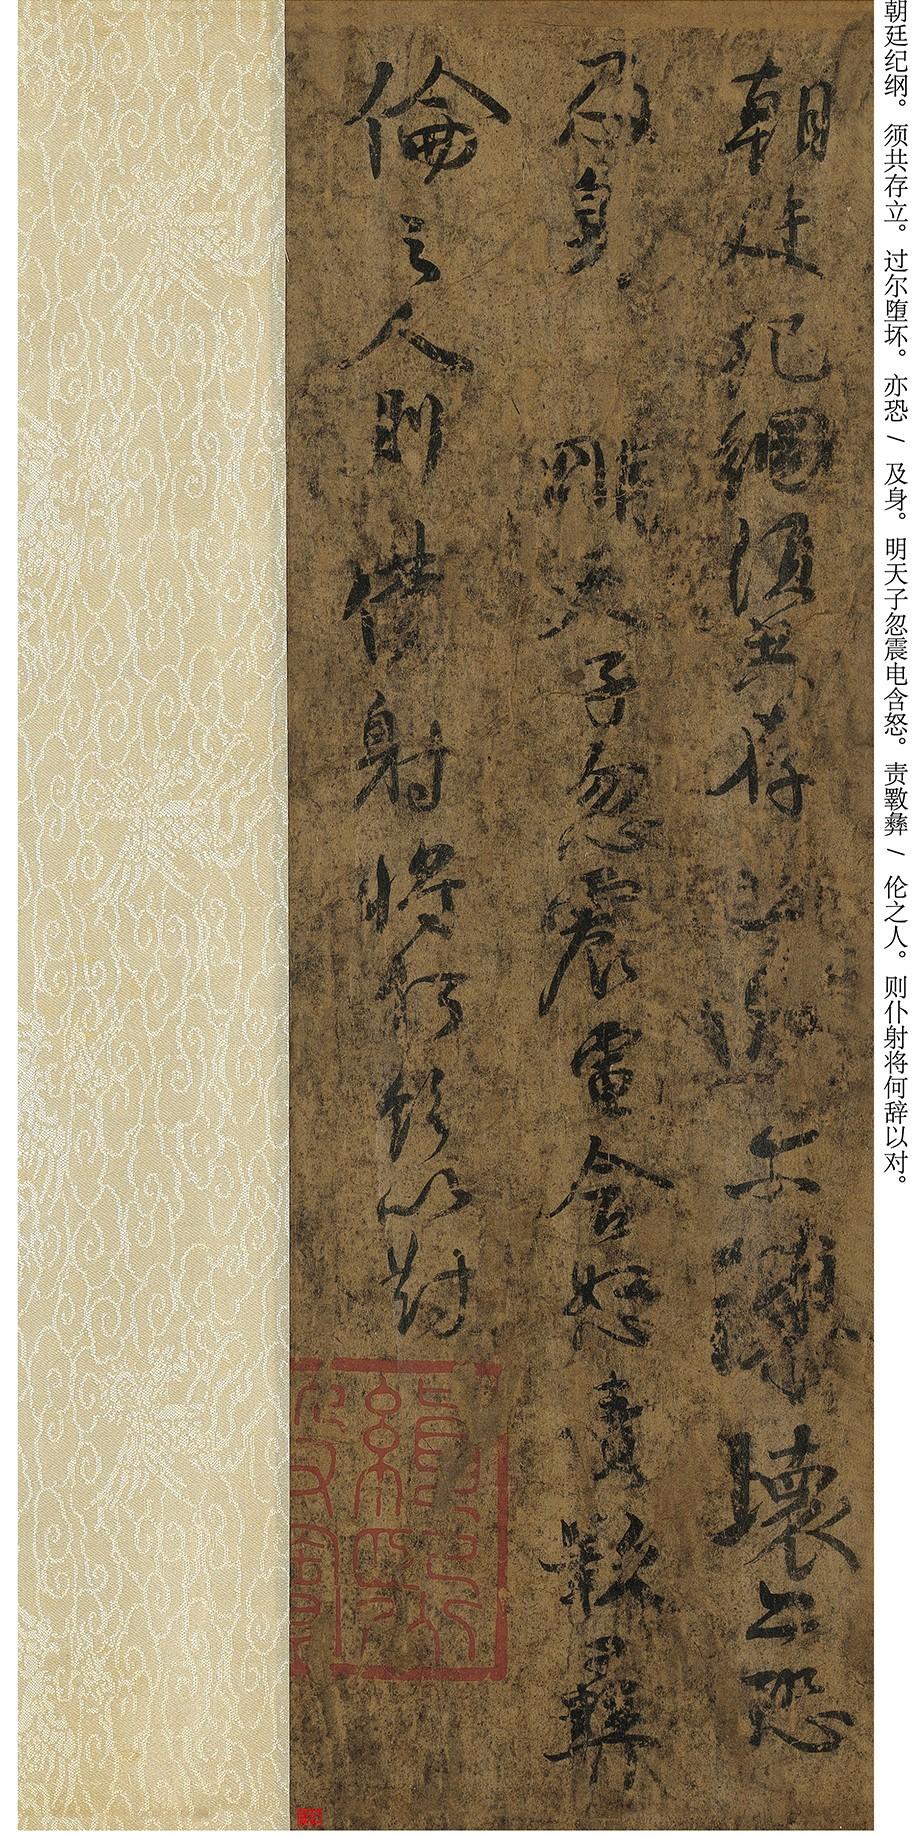 朝廷纪纲。须共存立。过尔堕坏。亦恐/及身。明天子忽震电含怒。责斁彝/伦之人。则仆射将何辞以对。
朝廷紀綱須共存立過爾隳壞亦恐
及身明天子忽震電含怒責斁彝
倫之人則僕射將何辭以對